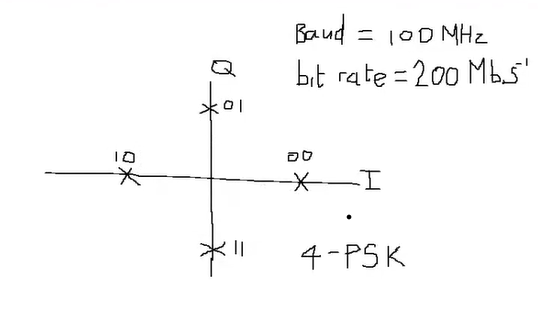 Baud = 100 MHz
bit rate = 200 Mb.s⁻¹
Q
01
10
00
I
11
4-PSK